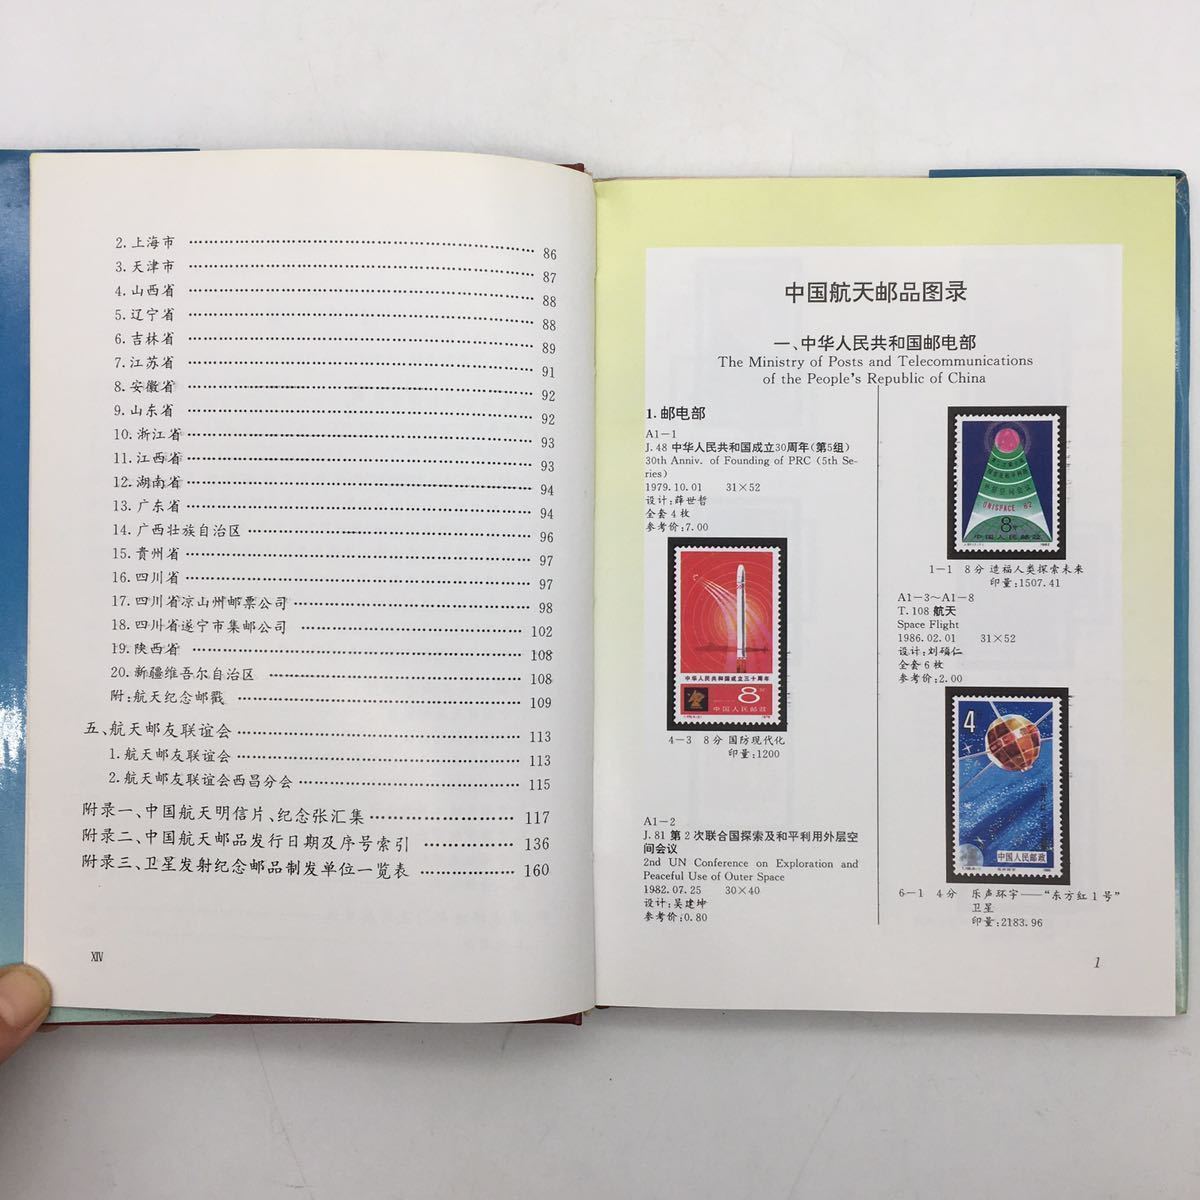 2.上海市 …… 86
3.天津市 …… 87
4.山西省 …… 88
5.辽宁省 …… 88
6.吉林省 …… 89
7.江苏省 …… 91
8.安徽省 …… 92
9.山东省 …… 92
10.浙江省 …… 93
11.江西省 …… 93
12.湖南省 …… 94
13.广东省 …… 94
14.广西壮族自治区 …… 96
15.贵州省 …… 97
16.四川省 …… 97
17.四川省凉山州邮票公司 …… 98
18.四川省遂宁市集邮公司 …… 102
19.陕西省 …… 108
20.新疆维吾尔自治区 …… 108
附:航天纪念邮戳 …… 109
五、航天邮友联谊会 …… 113
1.航天邮友联谊会 …… 113
2.航天邮友联谊会西昌分会 …… 115
附录一、中国航天明信片、纪念张汇集 …… 117
附录二、中国航天邮品发行日期及序号索引 …… 136
附录三、卫星发射纪念邮品制发单位一览表 …… 160
XIV
中国航天邮品图录
一、中华人民共和国邮电部
The Ministry of Posts and Telecommunications
of the People's Republic of China
1.邮电部
A1-1
J.48 中华人民共和国成立30周年(第5组)
30th Anniv. of Founding of PRC (5th Se-
ries)
1979.10.01 31×52
设计:薛世哲
全套4枚
参考价:7.00
中华人民共和国成立三十周年
8分
中国人民邮政
4-3 8分 国防现代化
印量:1200
A1-2
J.81 第2次联合国探索及和平利用外层空
间会议
2nd UN Conference on Exploration and
Peaceful Use of Outer Space
1982.07.25 30×40
设计:吴建坤
参考价:0.80
外层空间会议
UNISPACE 82
8分
中国人民邮政
1982
1-1 8分 造福人类探索未来
印量:1507.41
A1-3~A1-8
T.108 航天
Space Flight
1986.02.01 31×52
设计:刘硕仁
全套6枚
参考价:2.00
4
中国人民邮政
6-1 4分 乐声环宇——“东方红1号”
卫星
印量:2183.96
1